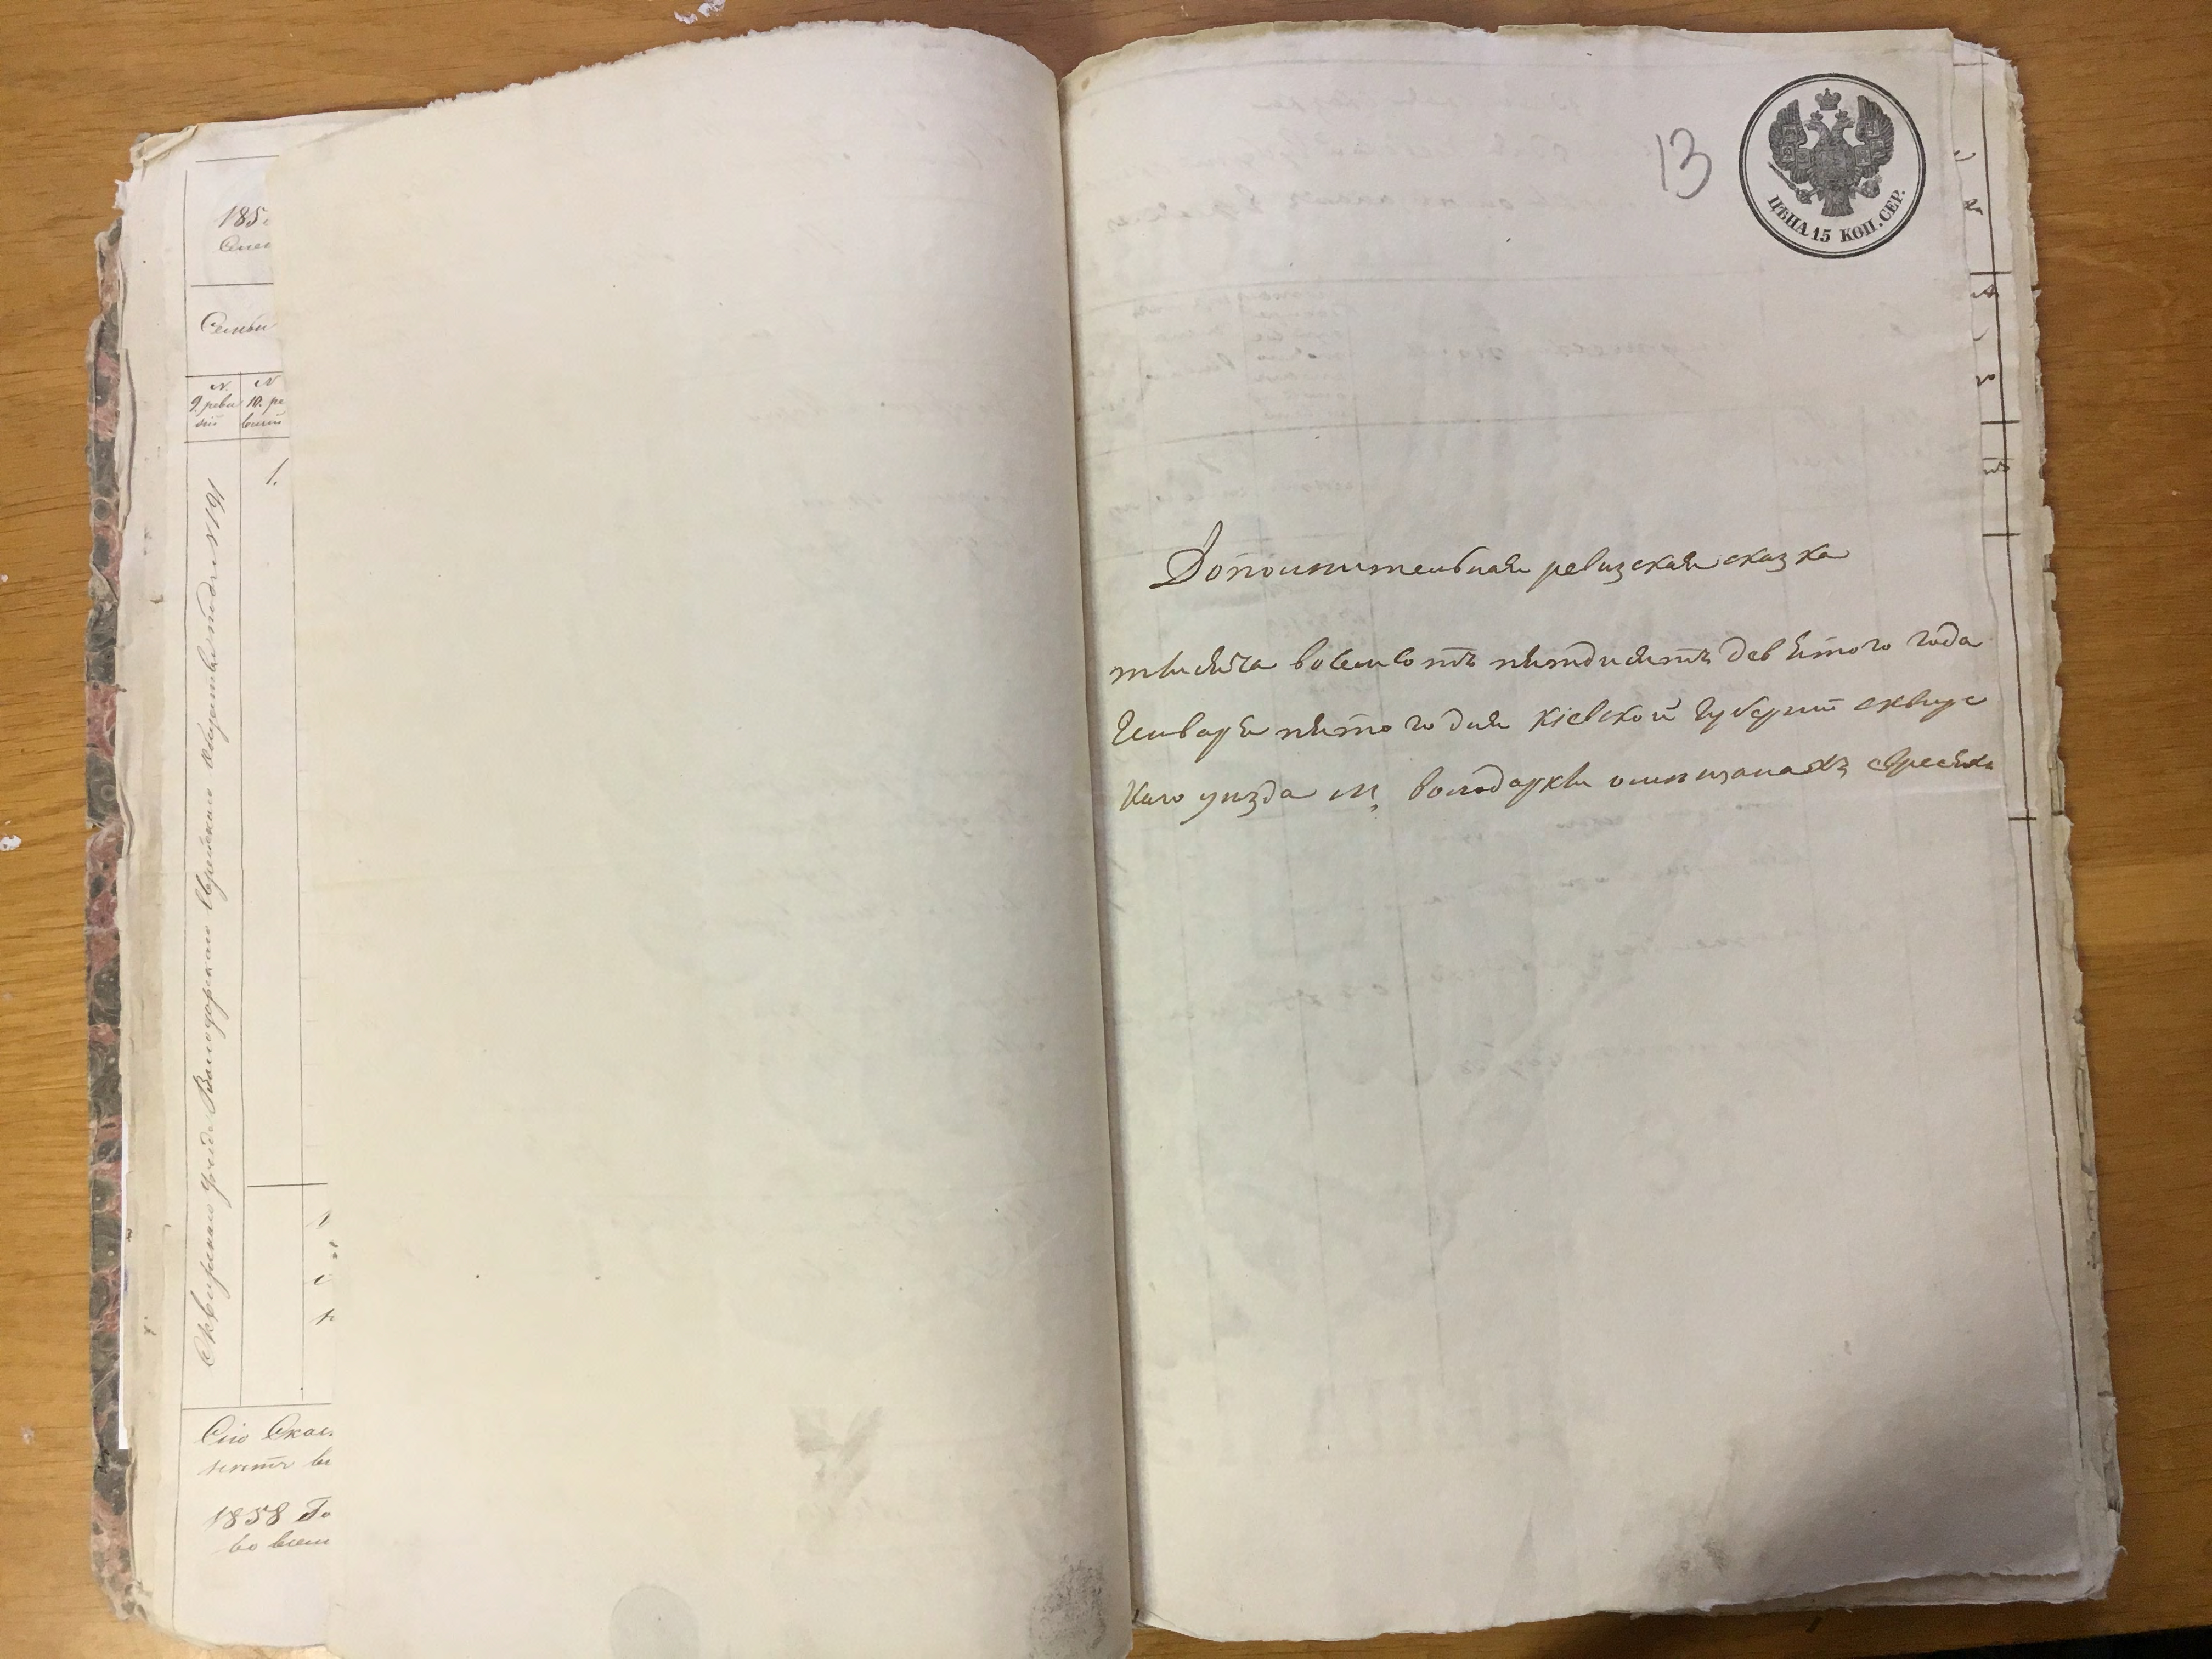 185
Семьи
N.
9. реви
зіи
N
10. ре
визіи
1.
Сквирскаго уезда Володарскаго Еврейскаго Общества подъ N 191
Сію Сказ
1858 Го
13
ЦѢНА 15 КОП. СЕР.
Дополнительная ревизская сказка
тысяча восемсотъ пятдисятъ девятого года
Генваря пятого дня Кіевской Губерніи сквирс
каго уизда м, володарки о мищанахъ евреяхъ